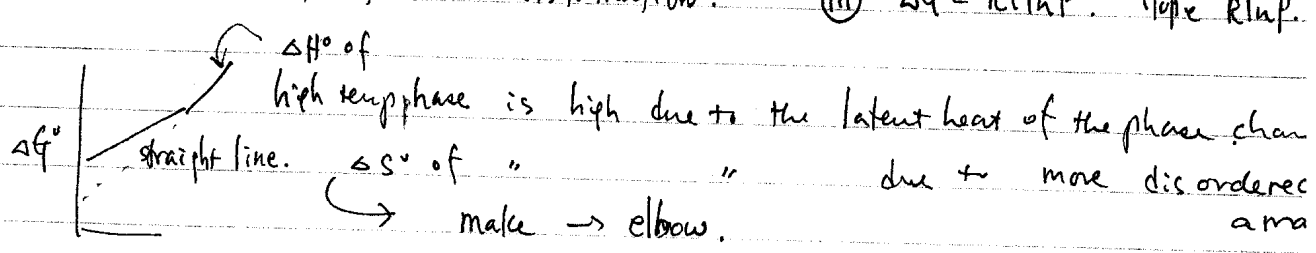 (iii) ΔG = RTlnP. slope RlnP.
ΔH° of
high temp phase is high due to the latent heat of the phase chan
ΔG° straight line. ΔS° of " " due to more disordered
make → elbow. ama